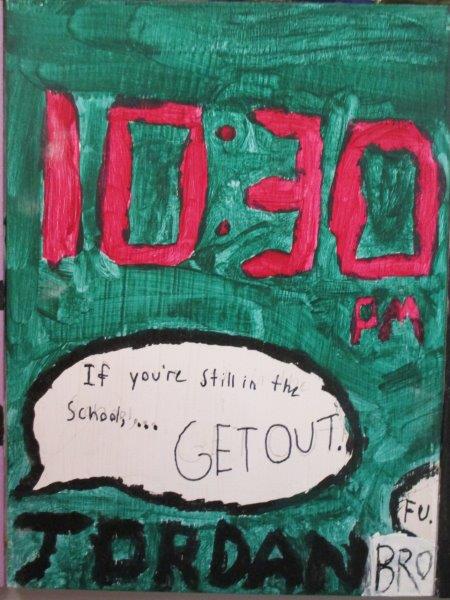 10:30
PM
If you're still in the
School,...
GET OUT.
FU.
JORDAN
BRO